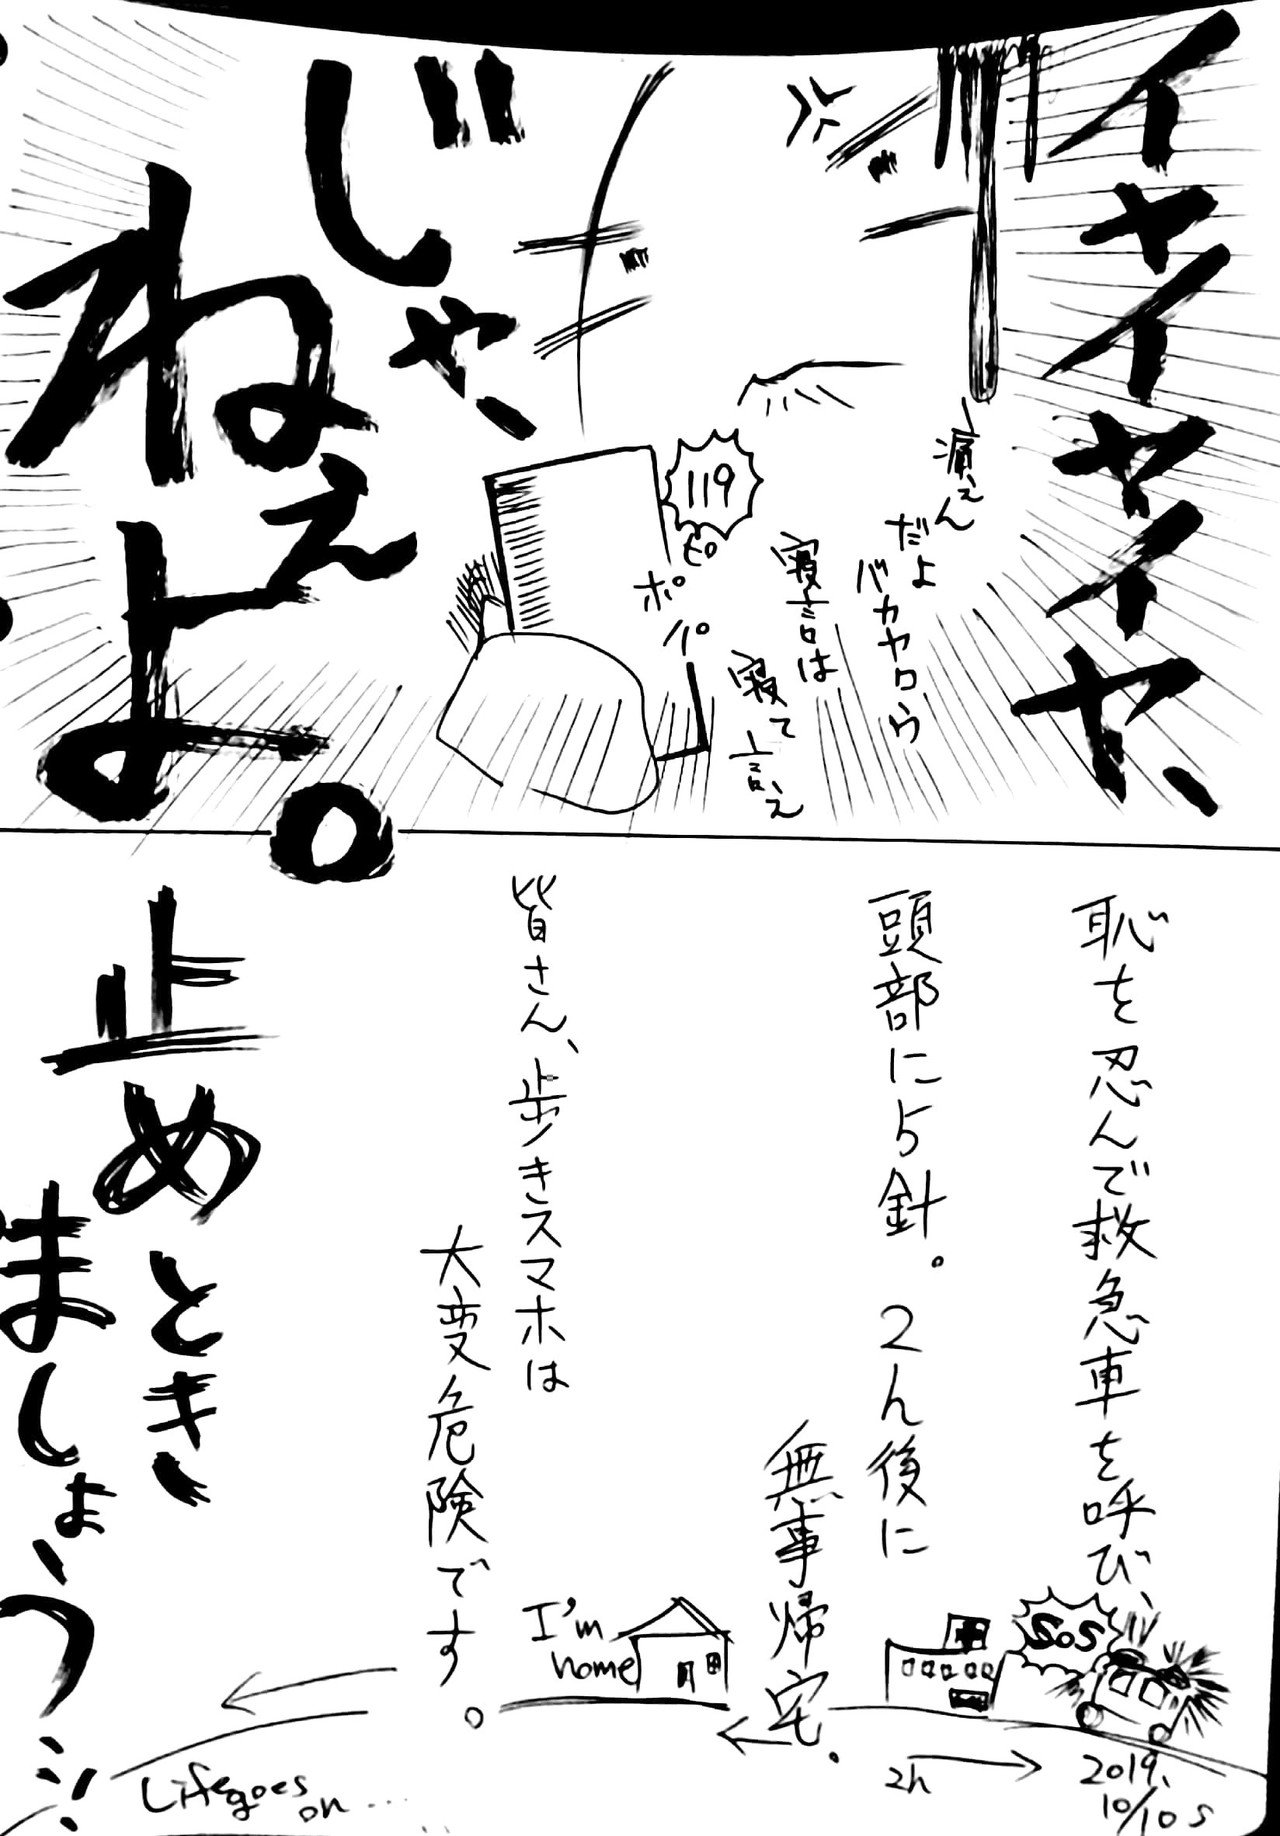 イヤイヤイヤ、
じゃ、
ねぇ
よ。
痛ぇん
だよ
バカヤロウ
寝言は
寝て
言え
119
ピ
ポ
パ
恥を忍んで救急車を呼び、
頭部に5針。2h後に
無事帰宅。
皆さん、歩きスマホは
大変危険です。
止めとき
ましょう
SOS
I'm
home
2019.
10/10 S
2h
Life goes
on...